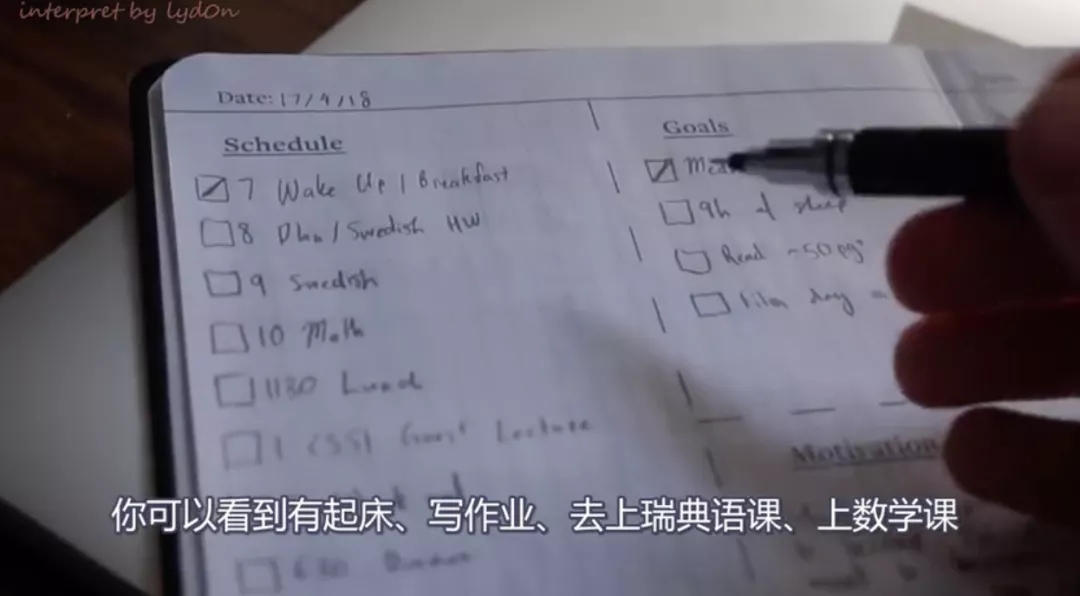 interpret by lydOn
Date: 17/4/18
Schedule
7 Wake Up / Breakfast
8 / Swedish HW
9 Swedish
10 Math
1130 Lunch
1 CSSI Guest Lecture
630 Dinner
Goals
9h of sleep
Read ~50 pg
day
Motivation
你可以看到有起床、写作业、去上瑞典语课、上数学课